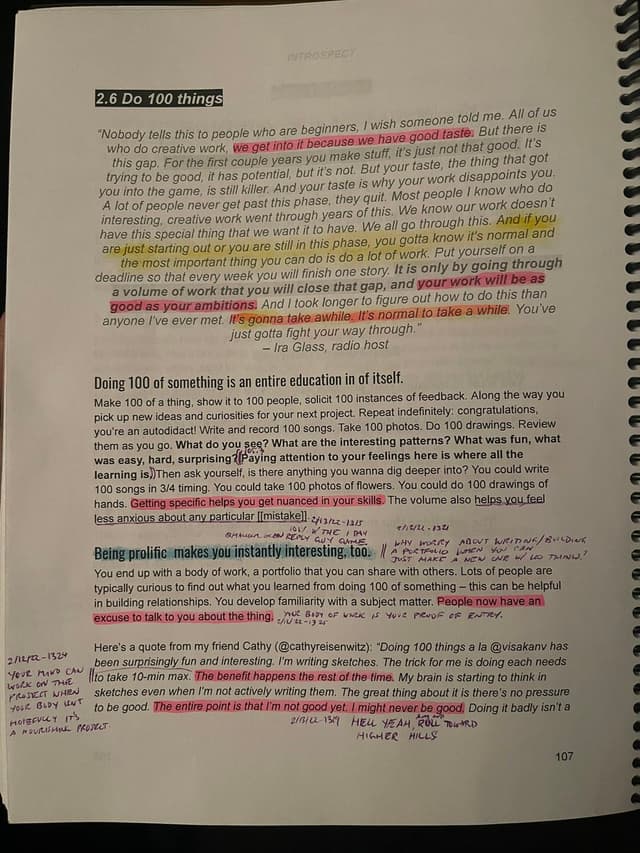 INTROSPECT
2.6 Do 100 things
"Nobody tells this to people who are beginners, I wish someone told me. All of us
who do creative work, we get into it because we have good taste. But there is
this gap. For the first couple years you make stuff, it's just not that good. It's
trying to be good, it has potential, but it's not. But your taste, the thing that got
you into the game, is still killer. And your taste is why your work disappoints you.
A lot of people never get past this phase, they quit. Most people I know who do
interesting, creative work went through years of this. We know our work doesn't
have this special thing that we want it to have. We all go through this. And if you
are just starting out or you are still in this phase, you gotta know it's normal and
the most important thing you can do is do a lot of work. Put yourself on a
deadline so that every week you will finish one story. It is only by going through
a volume of work that you will close that gap, and your work will be as
good as your ambitions. And I took longer to figure out how to do this than
anyone I've ever met. It's gonna take awhile. It's normal to take a while. You've
just gotta fight your way through."
– Ira Glass, radio host
Doing 100 of something is an entire education in of itself.
Make 100 of a thing, show it to 100 people, solicit 100 instances of feedback. Along the way you
pick up new ideas and curiosities for your next project. Repeat indefinitely: congratulations,
you're an autodidact! Write and record 100 songs. Take 100 photos. Do 100 drawings. Review
them as you go. What do you see? What are the interesting patterns? What was fun, what
was easy, hard, surprising? Paying attention to your feelings here is where all the
learning is. Then ask yourself, is there anything you wanna dig deeper into? You could write
100 songs in 3/4 timing. You could take 100 photos of flowers. You could do 100 drawings of
hands. Getting specific helps you get nuanced in your skills. The volume also helps you feel
less anxious about any particular [[mistake]]. 2/13/22-1315
REPLY GUY GAME
Being prolific makes you instantly interesting, too.
WHY WORRY ABOUT WRITING/BUILDING
A PORTFOLIO WHEN YOU CAN
JUST MAKE A NEW ONE W/ 100 THINGS?
You end up with a body of work, a portfolio that you can share with others. Lots of people are
typically curious to find out what you learned from doing 100 of something – this can be helpful
in building relationships. You develop familiarity with a subject matter. People now have an
excuse to talk to you about the thing. YOUR BODY OF WORK IS YOUR PROOF OF ENTRY.
Here's a quote from my friend Cathy (@cathyreisenwitz): "Doing 100 things a la @visakanv has
been surprisingly fun and interesting. I'm writing sketches. The trick for me is doing each needs
to take 10-min max. The benefit happens the rest of the time. My brain is starting to think in
sketches even when I'm not actively writing them. The great thing about it is there's no pressure
to be good. The entire point is that I'm not good yet. I might never be good. Doing it badly isn't a
2/12/22-1324
YOUR MIND CAN
WORK ON THE
PROJECT WHEN
YOUR BODY ISN'T
HOPEFULLY IT'S
A NOURISHING PROJECT.
2/13/22-1319 HELL YEAH, ROLL TOWARD
HIGHER HILLS
107